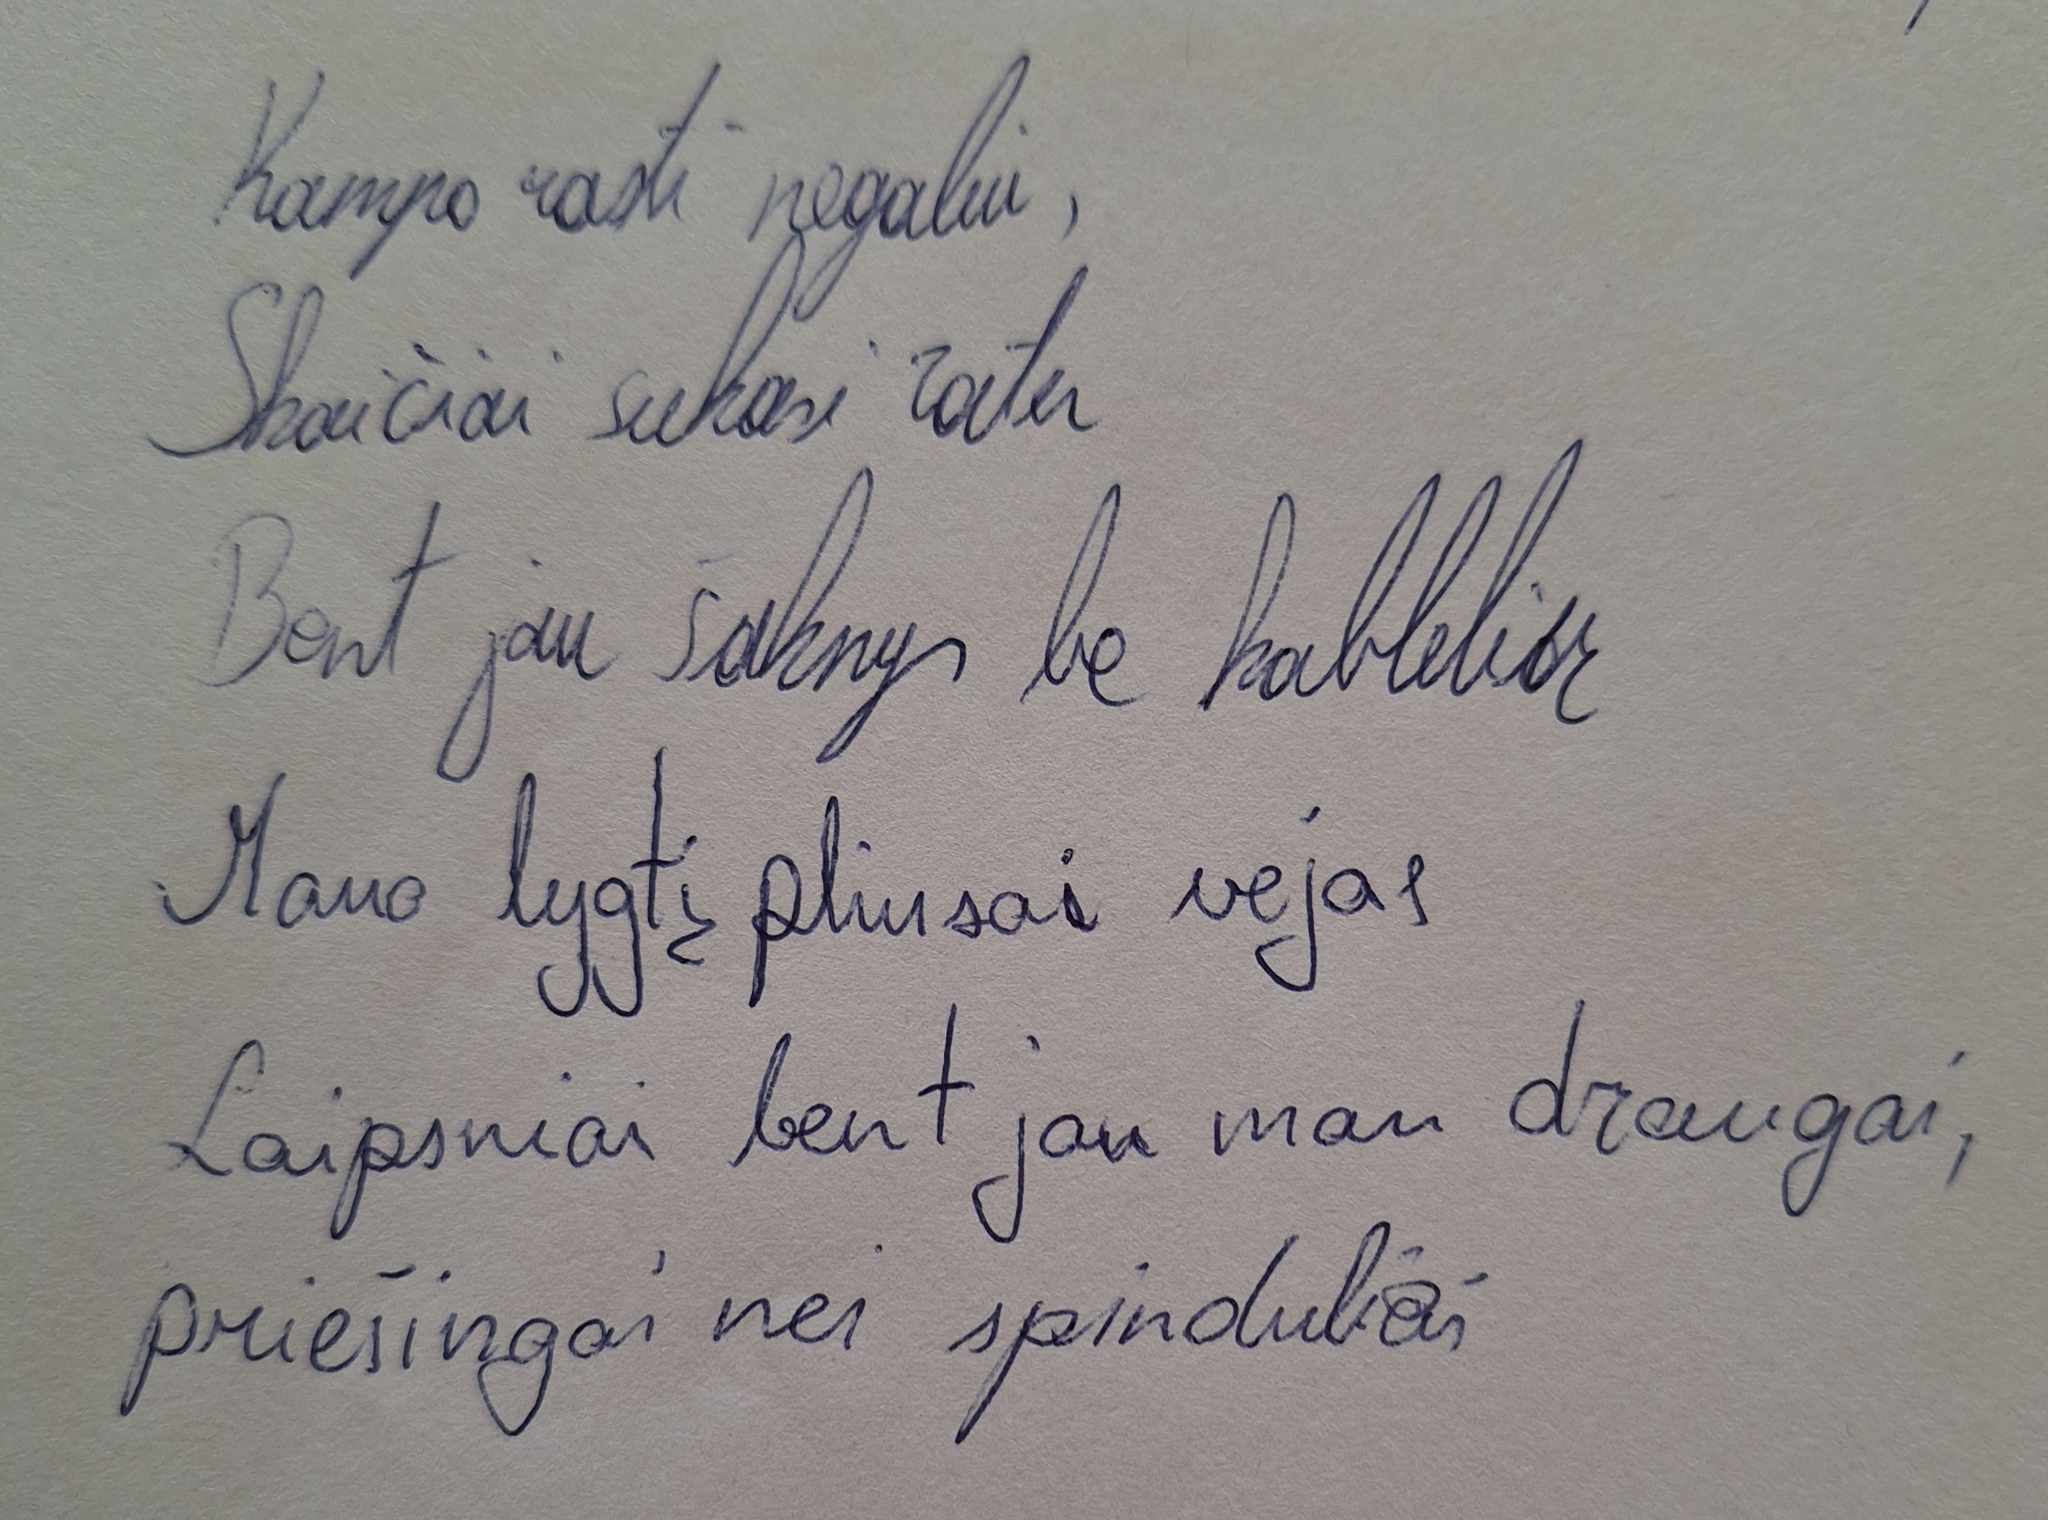 Kampo rasti negaliu,
Skaičiai sukasi ratu
Bent jau šaknys be kablelių
Mano lygtį pliusai vejas
Laipsniai bent jau man draugai,
priešingai nei spinduliai